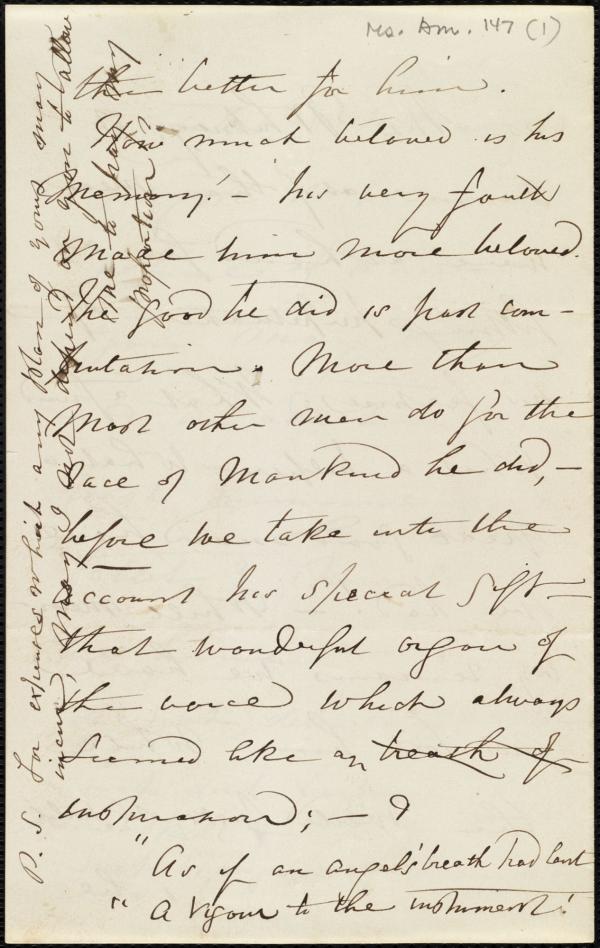 Ms. Am. 147 (1)
then better for him.
How much beloved is his
memory! – his very faults
made him more beloved.
The good he did is past com-
putation. More than
most other men do for the
race of Mankind he did, –
before we take into the
account his special gift –
that wonderful organ of
the voice which always
seemed like an breath of
inspiration; – &
"As if an angel's breath had lent
" A vigour to the instrument!
P. S. For expenses which any plan of yours may
incur, may I not depend on you to allow
me to pay my
proportion?